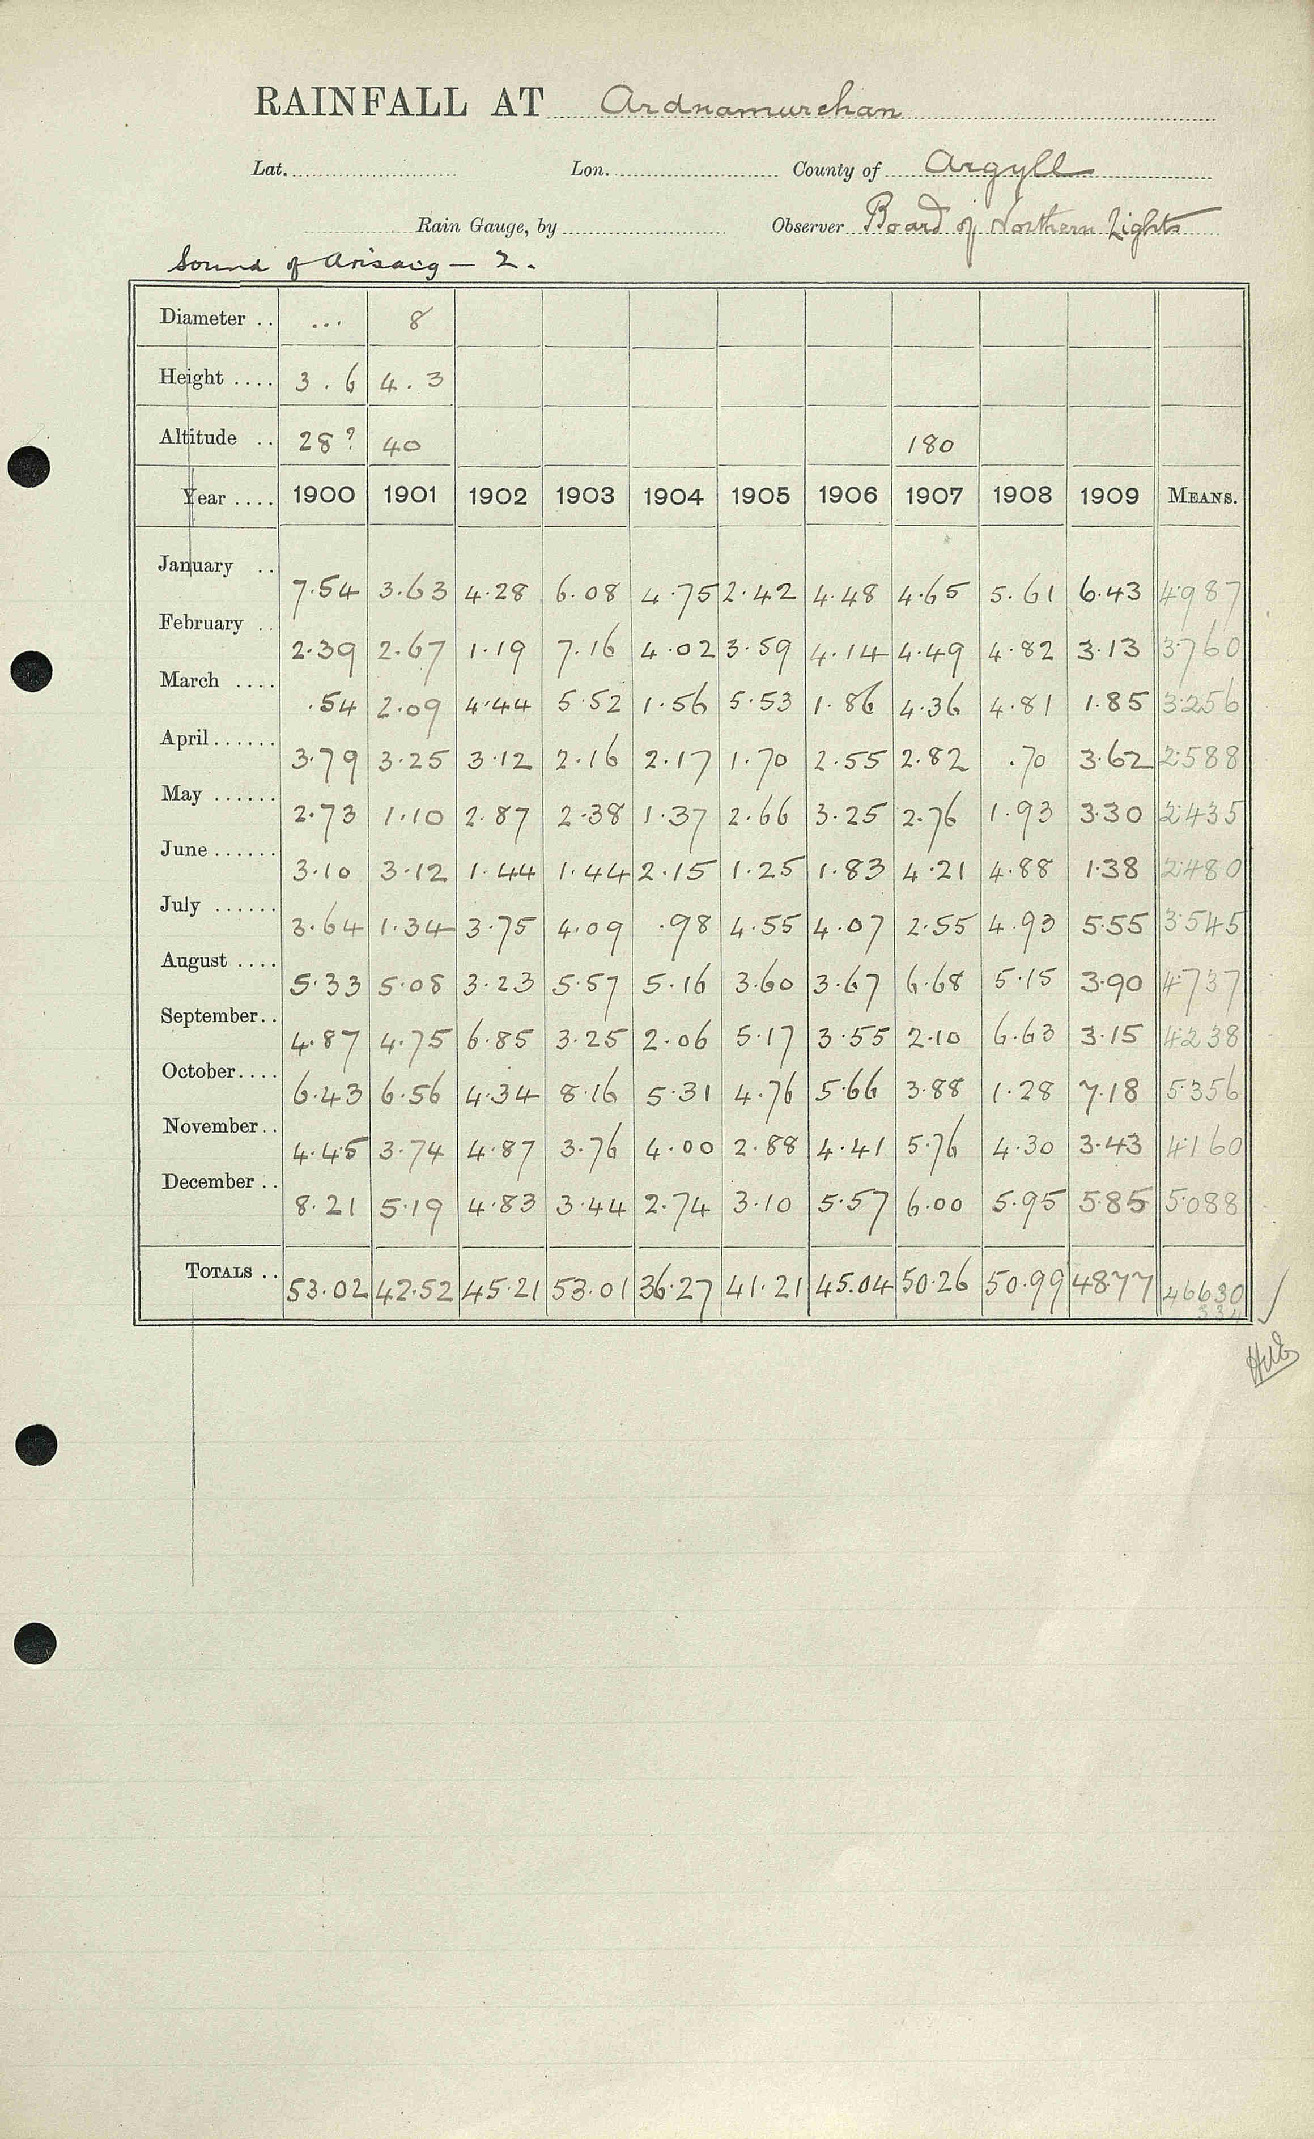 RAINFALL AT Ardnamurchan
Lat. Lon. County of Argyll
Rain Gauge, by Observer Board of Northern Lights
Sound of Arisaig — 2.
Diameter .. ... 8
Height .... 3.6 4.3
Altitude .. 28? 40 180
Year .... 1900 1901 1902 1903 1904 1905 1906 1907 1908 1909 MEANS.
January .. 7.54 3.63 4.28 6.08 4.75 2.42 4.48 4.65 5.61 6.43 4.987
February .. 2.39 2.67 1.19 7.16 4.02 3.59 4.14 4.49 4.82 3.13 3.760
March .... .54 2.09 4.44 5.52 1.56 5.53 1.86 4.36 4.81 1.85 3.256
April...... 3.79 3.25 3.12 2.16 2.17 1.70 2.55 2.82 .70 3.62 2.588
May ...... 2.73 1.10 2.87 2.38 1.37 2.66 3.25 2.76 1.93 3.30 2.435
June...... 3.10 3.12 1.44 1.44 2.15 1.25 1.83 4.21 4.88 1.38 2.480
July ...... 3.64 1.34 3.75 4.09 .98 4.55 4.07 2.55 4.93 5.55 3.545
August .... 5.33 5.08 3.23 5.57 5.16 3.60 3.67 6.68 5.15 3.90 4.737
September.. 4.87 4.75 6.85 3.25 2.06 5.17 3.55 2.10 6.63 3.15 4.238
October.... 6.43 6.56 4.34 8.16 5.31 4.76 5.66 3.88 1.28 7.18 5.356
November.. 4.45 3.74 4.87 3.76 4.00 2.88 4.41 5.76 4.30 3.43 4.160
December .. 8.21 5.19 4.83 3.44 2.74 3.10 5.57 6.00 5.95 5.85 5.088
TOTALS .. 53.02 42.52 45.21 53.01 36.27 41.21 45.04 50.26 50.99 48.77 46630